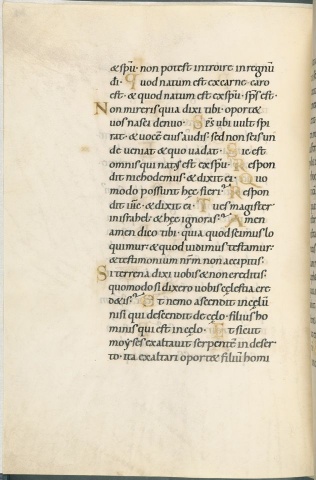 & spū· non potest introire in regnū
di· Quod natum est ex carne· caro
est· & quod natum est ex spū· sp̄s est·
Non mireris quia dixi tibi· oport&
uos nasci denuo· Sp̄s ubi uult spi
rat· & uocē eius audis· sed non scis un
de ueniat & quo uadat· Sic est
omnis qui natus est ex spū· Respon
dit nichodemus· & dixit ei· Quo
modo possunt hęc fieri? Respon
dit ihc̄· & dixit ei· Tu es magister
in israhel· & hęc ignoras? Amen
amen dico tibi· quia quod scimus lo
quimur· & quod uidimus testamur·
& testimonium nrm̄ non accipitis·
Si terrena dixi uobis & non creditis·
quomodo si dixero uobis cęlestia cre
d&is? Et nemo ascendit in cęlū
nisi qui descendit de cęlo· filius ho
minis qui est in cęlo· Et sicut
moyses exaltauit serpentē in deser
to· ita exaltari oport& filiū homi